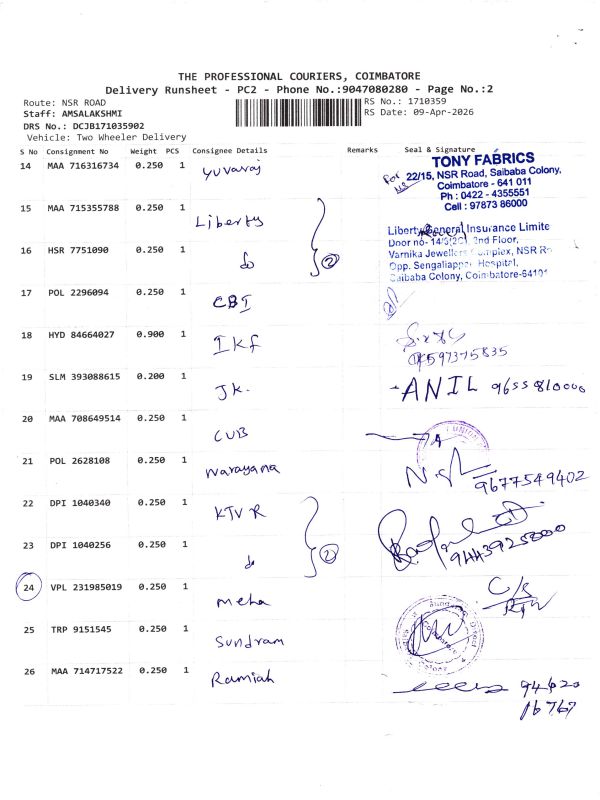 THE PROFESSIONAL COURIERS, COIMBATORE
Delivery Runsheet - PC2 - Phone No.:9047080280 - Page No.:2
Route: NSR ROAD
RS No.: 1710359
Staff: AMSALAKSHMI
RS Date: 09-Apr-2026
DRS No.: DCJB171035902
Vehicle: Two Wheeler Delivery
S No Consignment No Weight PCS Consignee Details Remarks Seal & Signature
14 MAA 716316734 0.250 1 Yuvaraj
For
TONY FABRICS
22/15, NSR Road, Saibaba Colony,
Coimbatore - 641 011
Ph : 0422 - 4355551
Cell : 97873 86000
15 MAA 715355788 0.250 1 Liberty
16 HSR 7751090 0.250 1 do
2
Liberty General Insurance Limite
Door no- 2nd Floor,
Varnika Jewellers Complex, NSR
Opp. Sengaliappa Hospital,
Saibaba Colony, Coimbatore-64101
17 POL 2296094 0.250 1 CBI
18 HYD 84664027 0.900 1 Ikf
597375835
19 SLM 393088615 0.200 1 Jk.
ANIL 9655810000
20 MAA 708649514 0.250 1 CUB
UNION
21 POL 2628108 0.250 1 Narayana
9677549402
22 DPI 1040340 0.250 1 KTVR
23 DPI 1040256 0.250 1 do
2
9443925000
24 VPL 231985019 0.250 1 Meha
C/S
25 TRP 9151545 0.250 1 Sundram
26 MAA 714717522 0.250 1 Ramiah
94620
16767